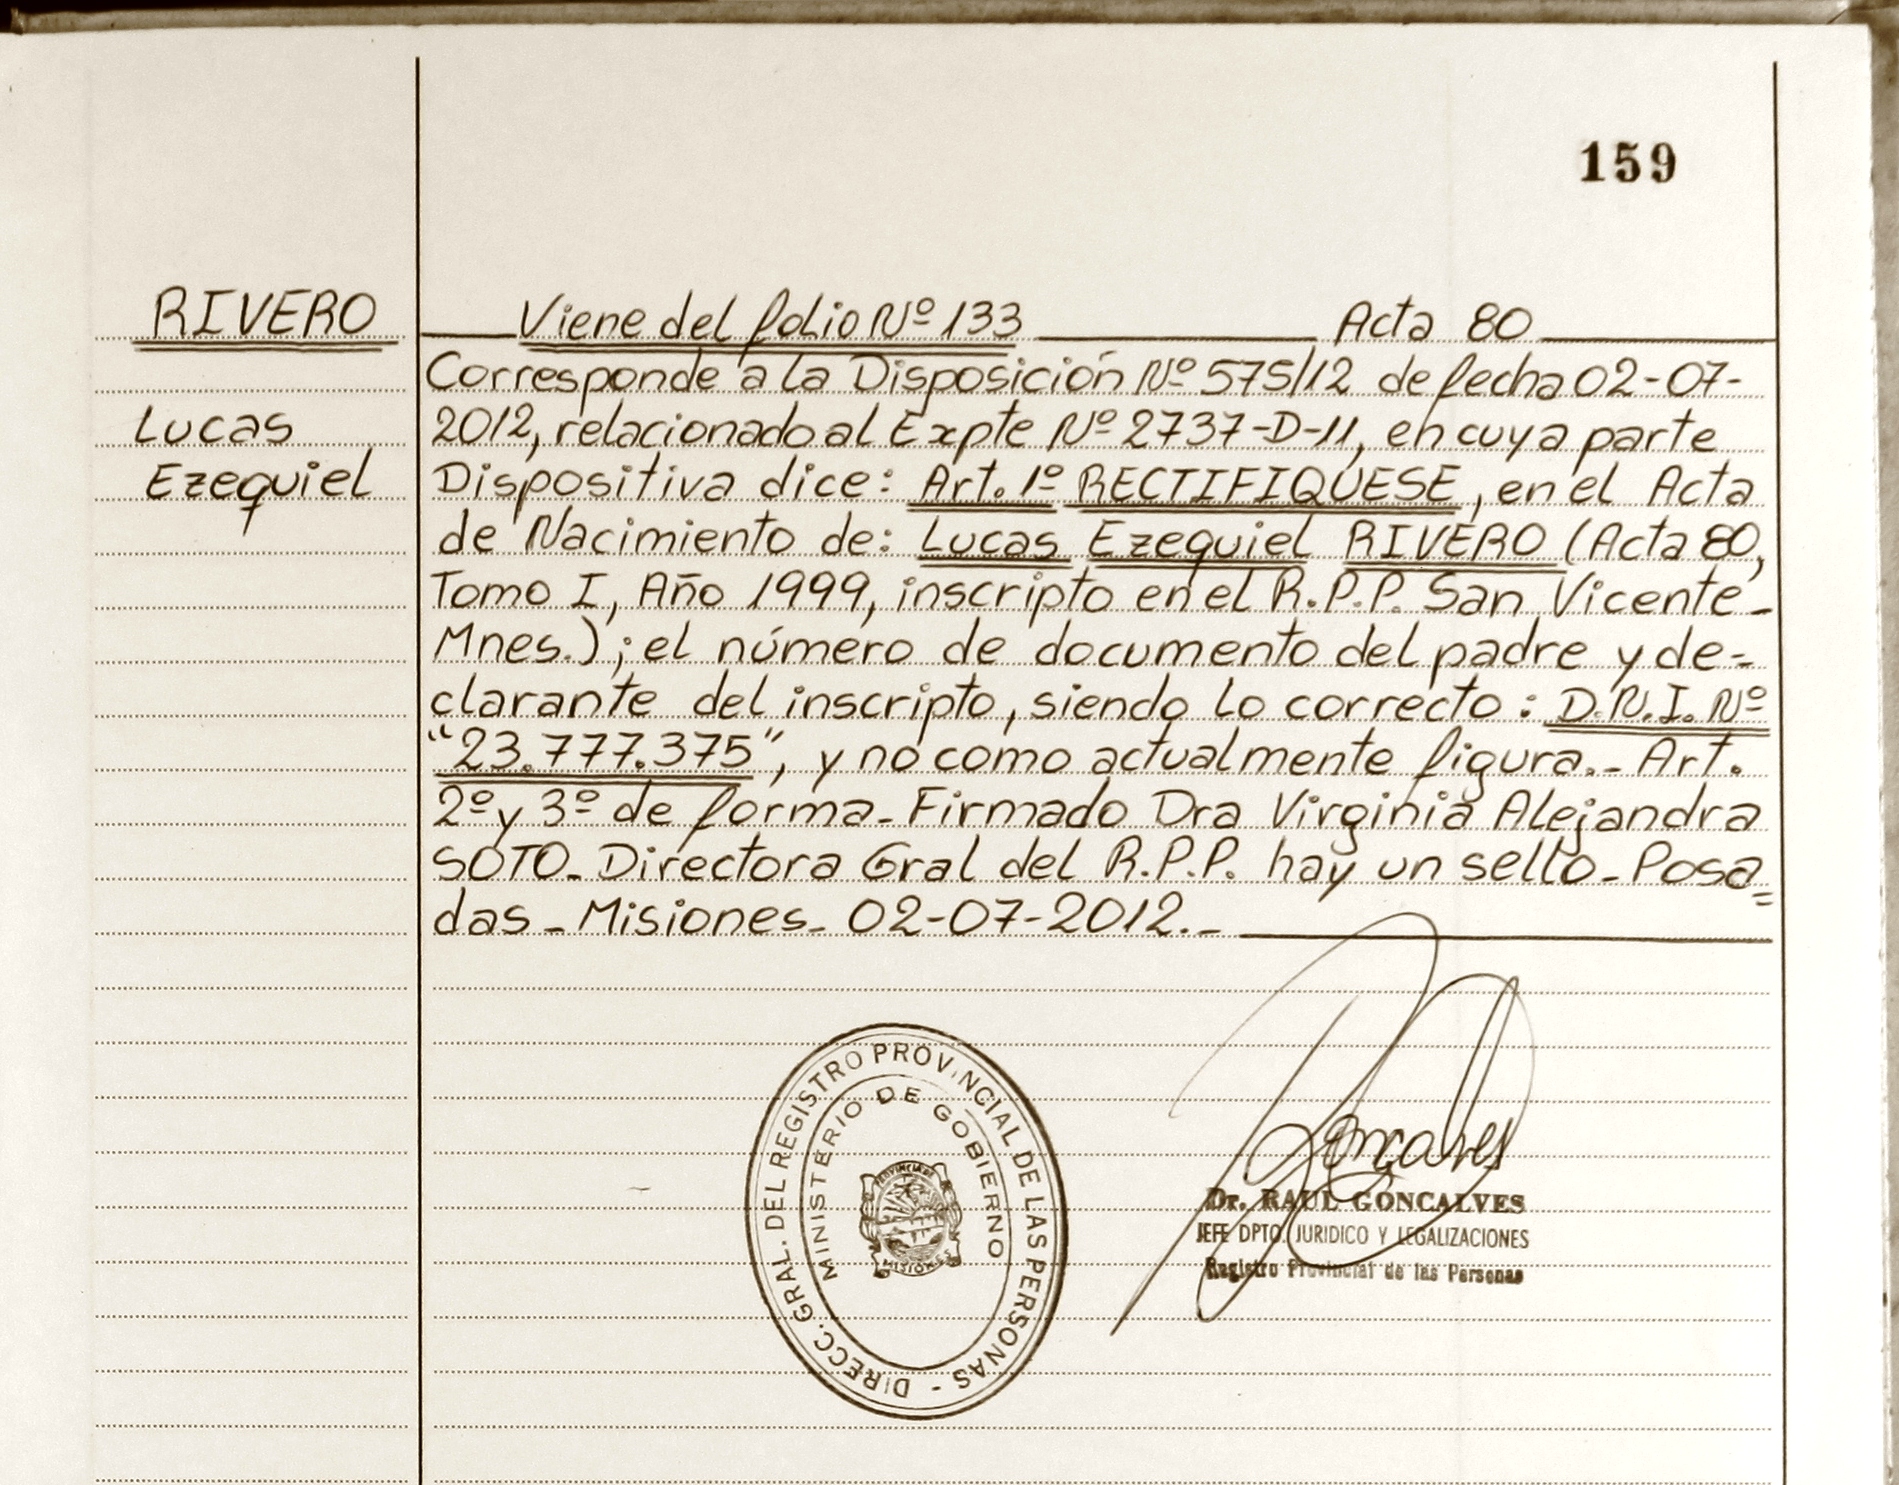 159
RIVERO
Lucas
Ezequiel
Viene del folio Nº 133 Acta 80
Corresponde a la Disposición Nº 575/12 de fecha 02-07-
2012, relacionado al Expte Nº 2737-D-11, en cuya parte
Dispositiva dice: Art. 1º RECTIFIQUESE, en el Acta
de Nacimiento de: Lucas Ezequiel RIVERO (Acta 80,
Tomo I, Año 1999, inscripto en el R.P.P. San Vicente-
Mnes.); el número de documento del padre y de-
clarante del inscripto, siendo lo correcto: D.N.I. Nº
"23.777.375", y no como actualmente figura.- Art.
2º y 3º de forma- Firmado Dra Virginia Alejandra
SOTO- Directora Gral del R.P.P. hay un sello- Posa=
das - Misiones- 02-07-2012.-
DIRECC. GRAL. DEL REGISTRO PROVINCIAL DE LAS PERSONAS -
MINISTERIO DE GOBIERNO
PROVINCIA DE
MISIONES
Goncalves
Dr. RAUL GONCALVES
JEFE DPTO. JURIDICO Y LEGALIZACIONES
Registro Provincial de las Personas